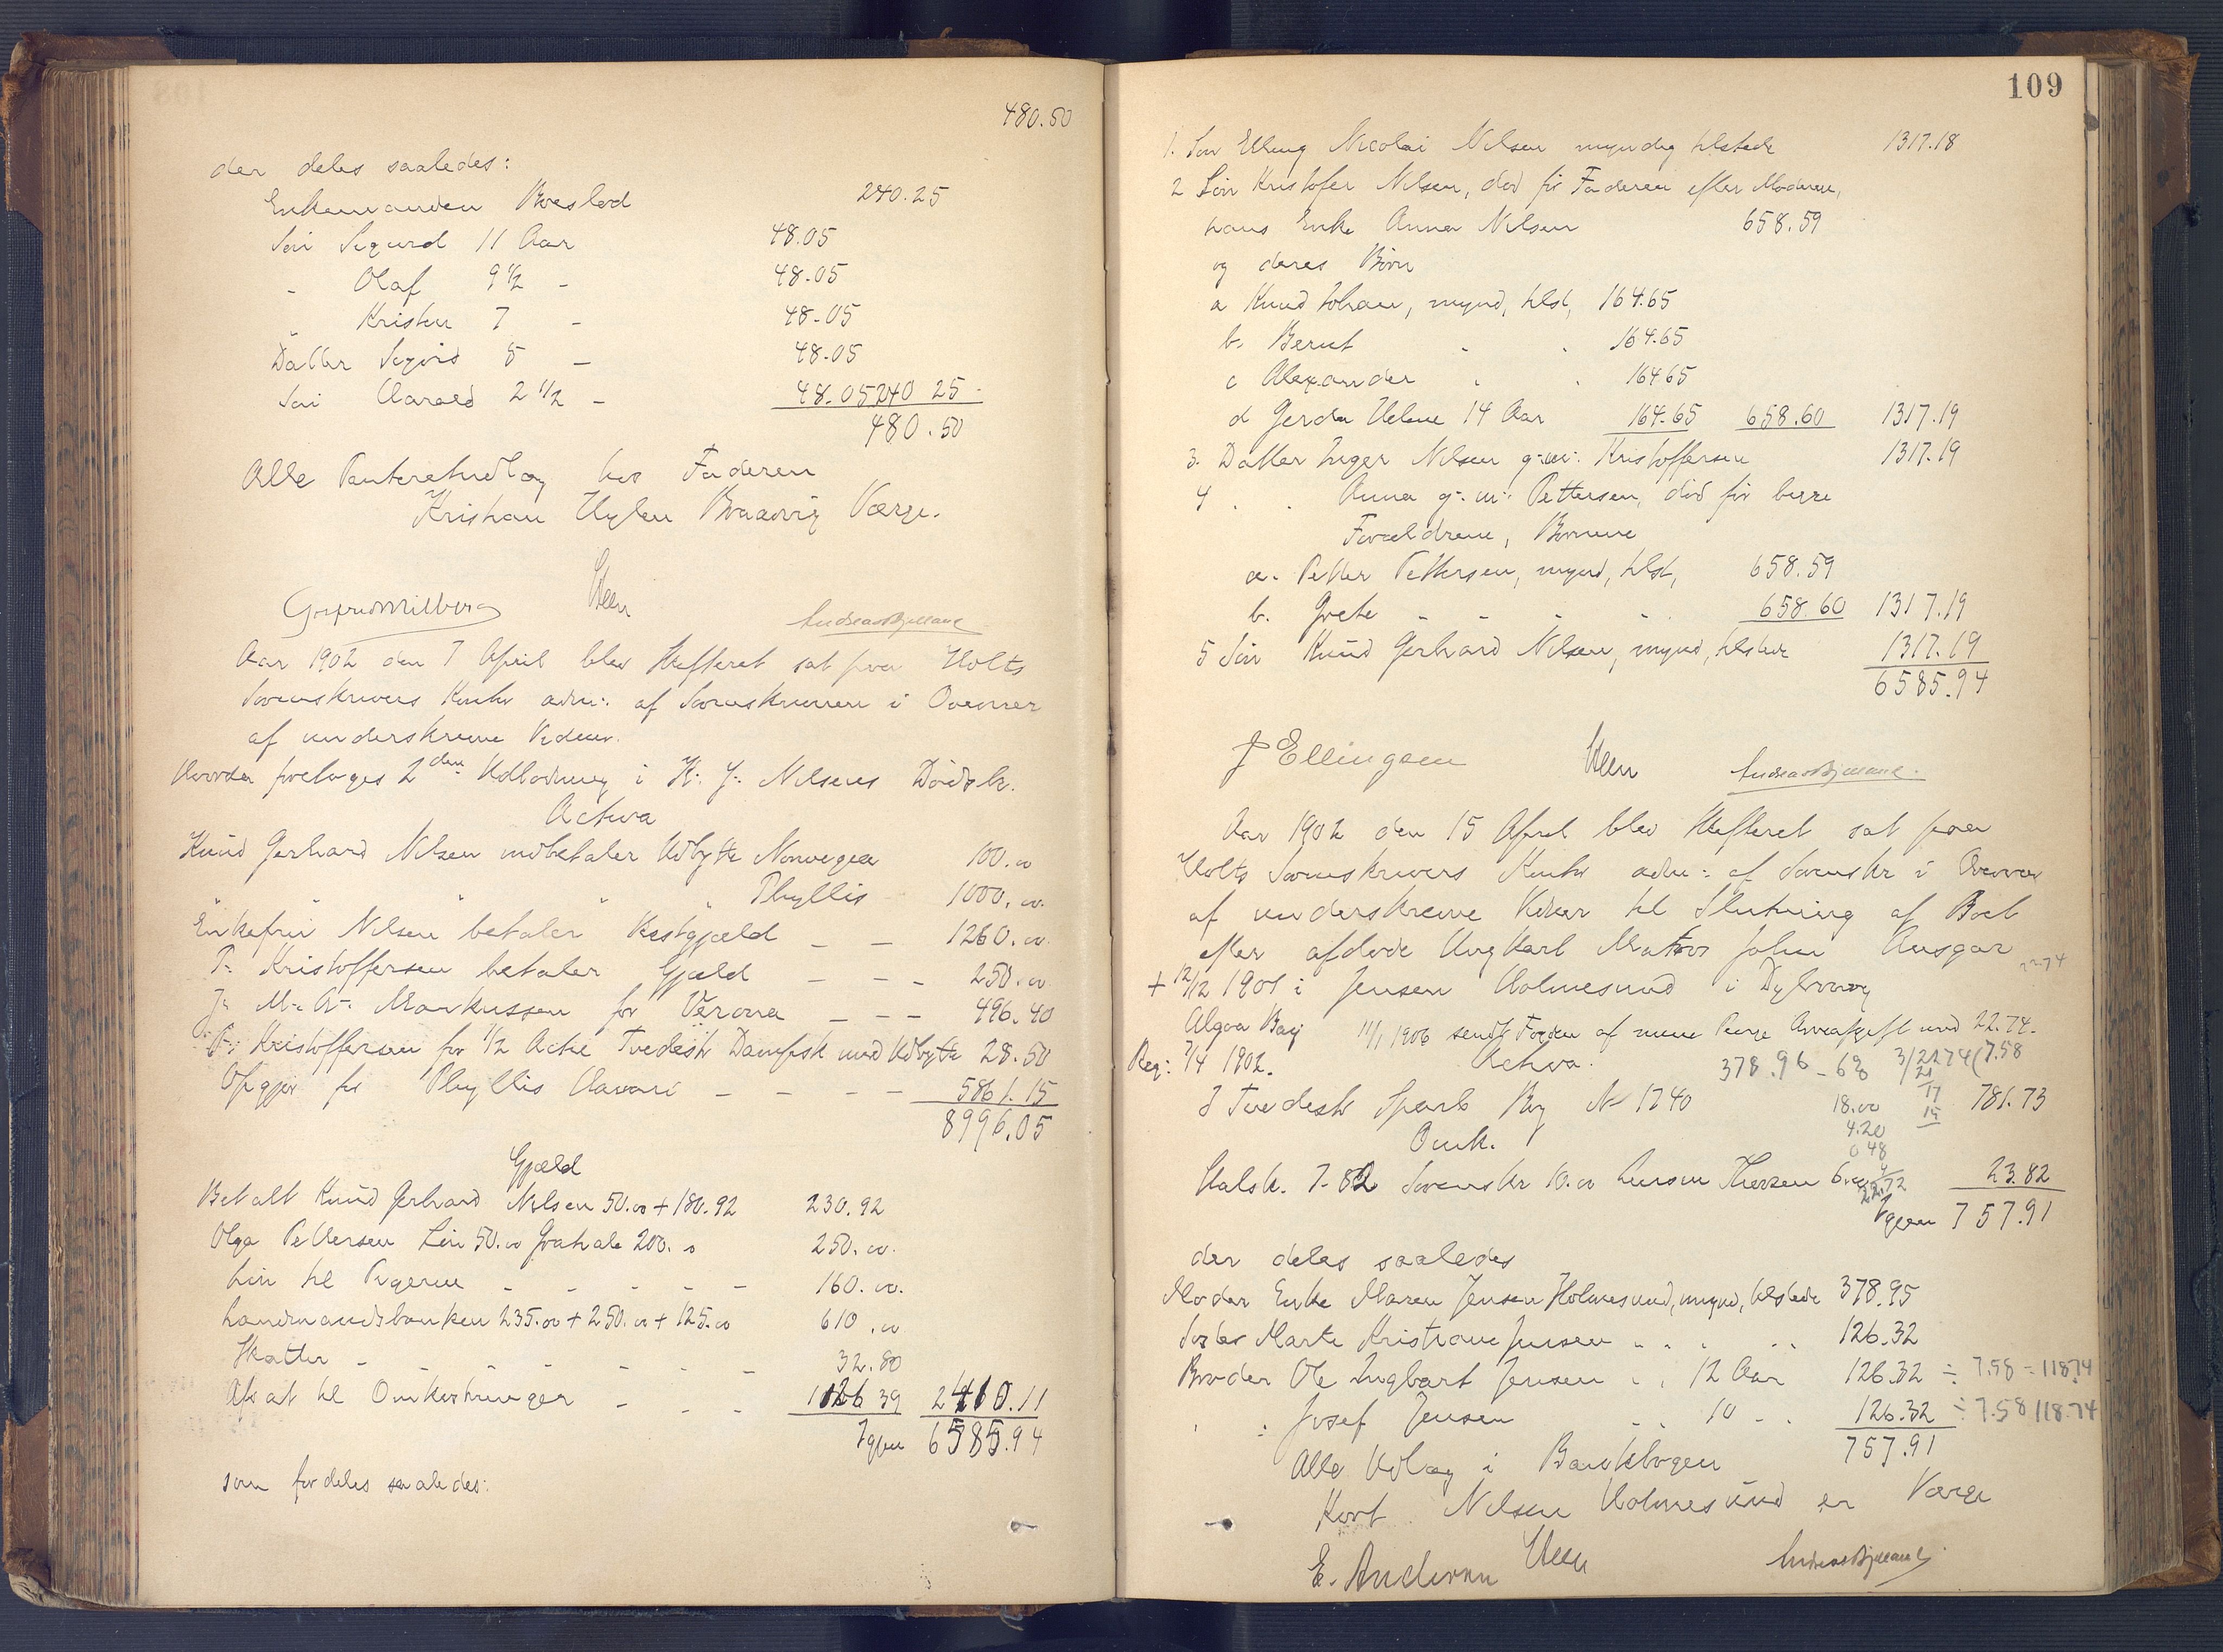 480.50
der deles saaledes:
Enkemanden Boeslod 240.25
Søn Sigurd 11 Aar 48.05
- Olaf 9 1/2 - 48.05
" Kristen 7 - 48.05
Datter Sigrid 5 - 48.05
Søn Harald 2 1/2 - 48.05 240 25
480.50
Alle Panteretudlæg hos Faderen
Kristian Hylen Braavig Værge.
Heen Andreas Bjelland
Aar 1902 den 7 April blev Skifteret sat paa Holts
Sorenskrivers Kontor adm: af Sorenskriveren i Overvær
af underskrevne Vidner.
Hvorda foretoges 2den Udlodning i K. J. Nilsens Dødsb.
Activa
Knud Gerhard Nilsen indbetaler Udbytte Norwegen 100.00
" " " " " Phyllis 1000.00
Enkefru Nilsen betaler Restgjæld - - 1260.00
T. Kristoffersen betaler Gjæld - - - 250.00
J. M. A. Markussen for Verona - - - 496.40
T. Kristoffersen for 1/2 Actie Tvedestr Dampsk med Udbytte 28.50
Opgjør for Phyllis Havari - - - - 5861.15
8996.05
Gjæld
Betalt Knud Gerhard Nilsen 50.00 + 180.92 230.92
Olga Pettersen Løn 50.00 Gratiale 200.00 250.00
Løn til Pigerne - - - - - 160.00
Landmandsbanken 235.00 + 250.00 + 125.00 610.00
Skatter - - - - - - - 32.80
Afsat til Omkostninger - - - 1126 39 2410.11
Igjen 6585.94
som fordeles saaledes:
109
1. Søn Elling Nicolai Nilsen myndig tilstede 1317.18
2 Søn Kristofer Nilsen, død før Faderen efter Moderen,
hans Enke Anna Nilsen 658.59
og deres Børn
a Knud Johan, mynd, tilst, 164.65
b. Bernt - - 164.65
c Alexander - - 164.65
d Gerda Helene 14 Aar 164.65 658.60 1317.19
3. Datter Inger Nilsen g. m. Kristoffersen 1317.19
4 - - Anna g. m. Pettersen, død før begge
Forældrene, Børnene
a. Petter Pettersen, mynd, tilst, 658.59
b. Grete - - - - 658.60 1317.19
5 Søn Knud Gerhard Nilsen, mynd, tilstede 1317.19
6585.94
J Ellingsen Heen Andreas Bjelland.
Aar 1902 den 15 April blev Skifteret sat paa
Holts Sorenskrivers Kontor adm: af Sorenskr i Overvær
af underskrevne Vidner til Slutning af Boet
efter afdøde Ungkarl Matros John Ansgar
22.74
+ 12/12 1901 i Jensen Holmesund i Dybvaag
Algoa Bay 11/1 1906 sendt Fogden af mine Penge Arveafgift med 22.74.
Reg: 7/4 1902. Activa. 378.96 - 6% 3/22.74(7.58
I Tvedestr Sparb Bog No 1740 18.00 781.73
Omk. 4.20
0 48
Halsk. 7.82 Sorenskr 10.00 Lensm Thorsen 6.00 22.72 23.82
Igjen 757.91
der deles saaledes
Moder Enke Maren Jensen Holmesund, mynd, tilstede 378.95
Søster Marte Kristiane Jensen - - - - 126.32
Broder Ole Ingbart Jensen - - 12 Aar 126.32 ÷ 7.58 = 118.74
- - Josef Jensen - - 10 - - 126.32 ÷ 7.58 118.74
757.91
Alle Udlæg i Bankbogen
Kort Nilsen Holmesund er Værge
E. Andersen Heen Andreas Bjelland